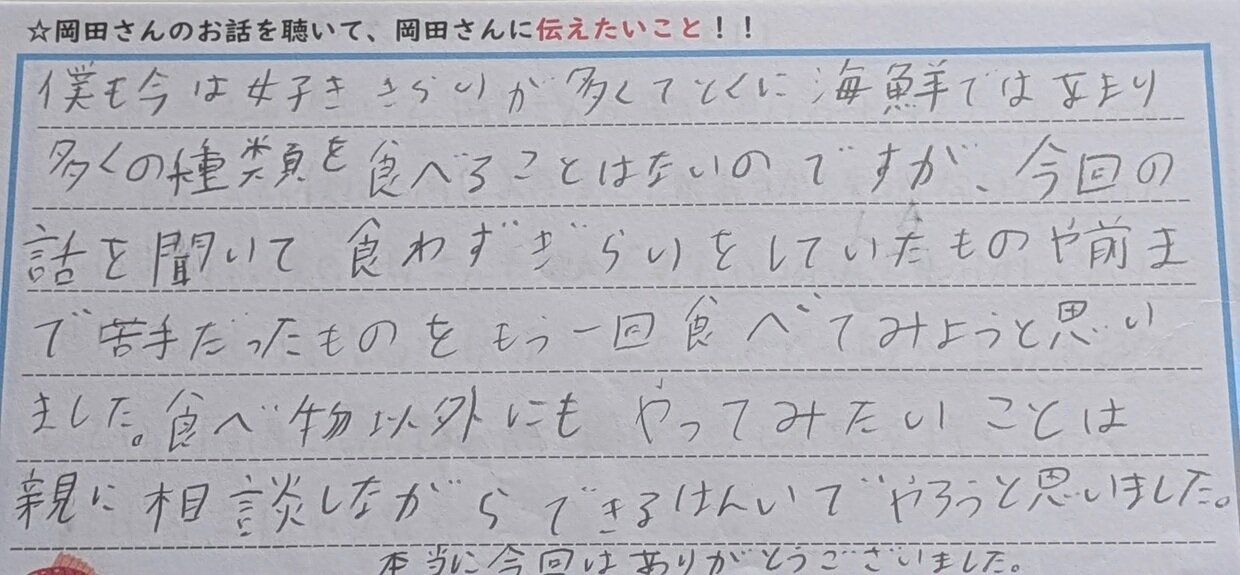 ☆岡田さんのお話を聴いて、岡田さんに伝えたいこと！！
僕も今は好ききらいが多くてとくに海鮮ではあまり
多くの種類を食べることはないのですが、今回の
話を聞いて食わずぎらいをしていたものや前ま
で苦手だったものをもう一回食べてみようと思い
ました。食べ物以外にもやってみたいことは
親に相談しながらできるはんいでやろうと思いました。
本当に今回はありがとうございました。